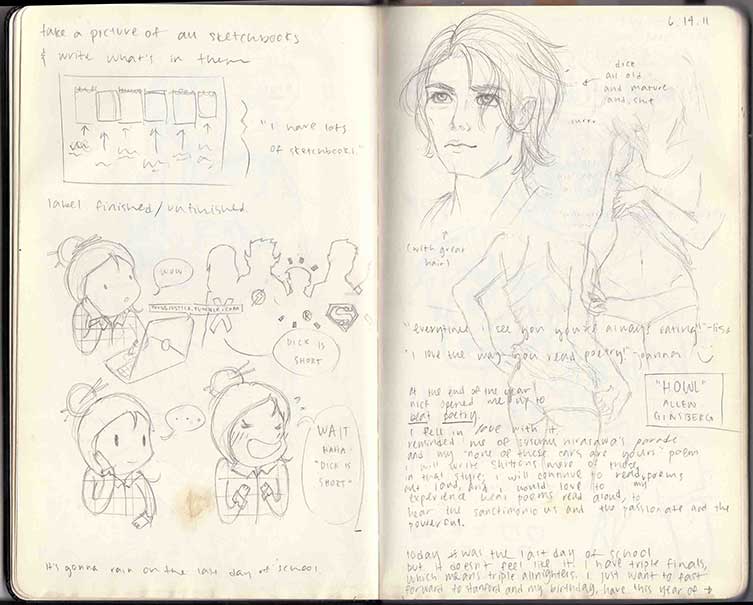 take a picture of all sketchbooks
& write what's in them
"I have lots
of sketchbooks."
label finished/unfinished
WOW
YOUNGJUSTICE.TUMBLR.COM
DICK IS
SHORT
...
WAIT
HAHA
"DICK IS
SHORT"
It's gonna rain on the last day of school
6.14.11
dick
all old
and mature
and shit
(with great
hair)
"everytime I see you you're always eating!" -lisa
"I love the way you read poetry!" -joanna
"HOWL"
ALLEN
GINSBERG
At the end of the year
nick opened me up to
beat poetry.
I fell in love with it.
reminded me of susumu hirasawa's parade
and my "none of these cars are yours" poem
I will write shittons more of those
in that style; I will continue to read poems
out loud, and I would love to my
experience hear poems read aloud, to
hear the sanctimonious and the passionate and the
powerful.
today was the last day of school
but it doesn't feel like it. I have triple finals,
which means triple allnighters. I just want to fast
forward to stanford and my birthday, have this year of →